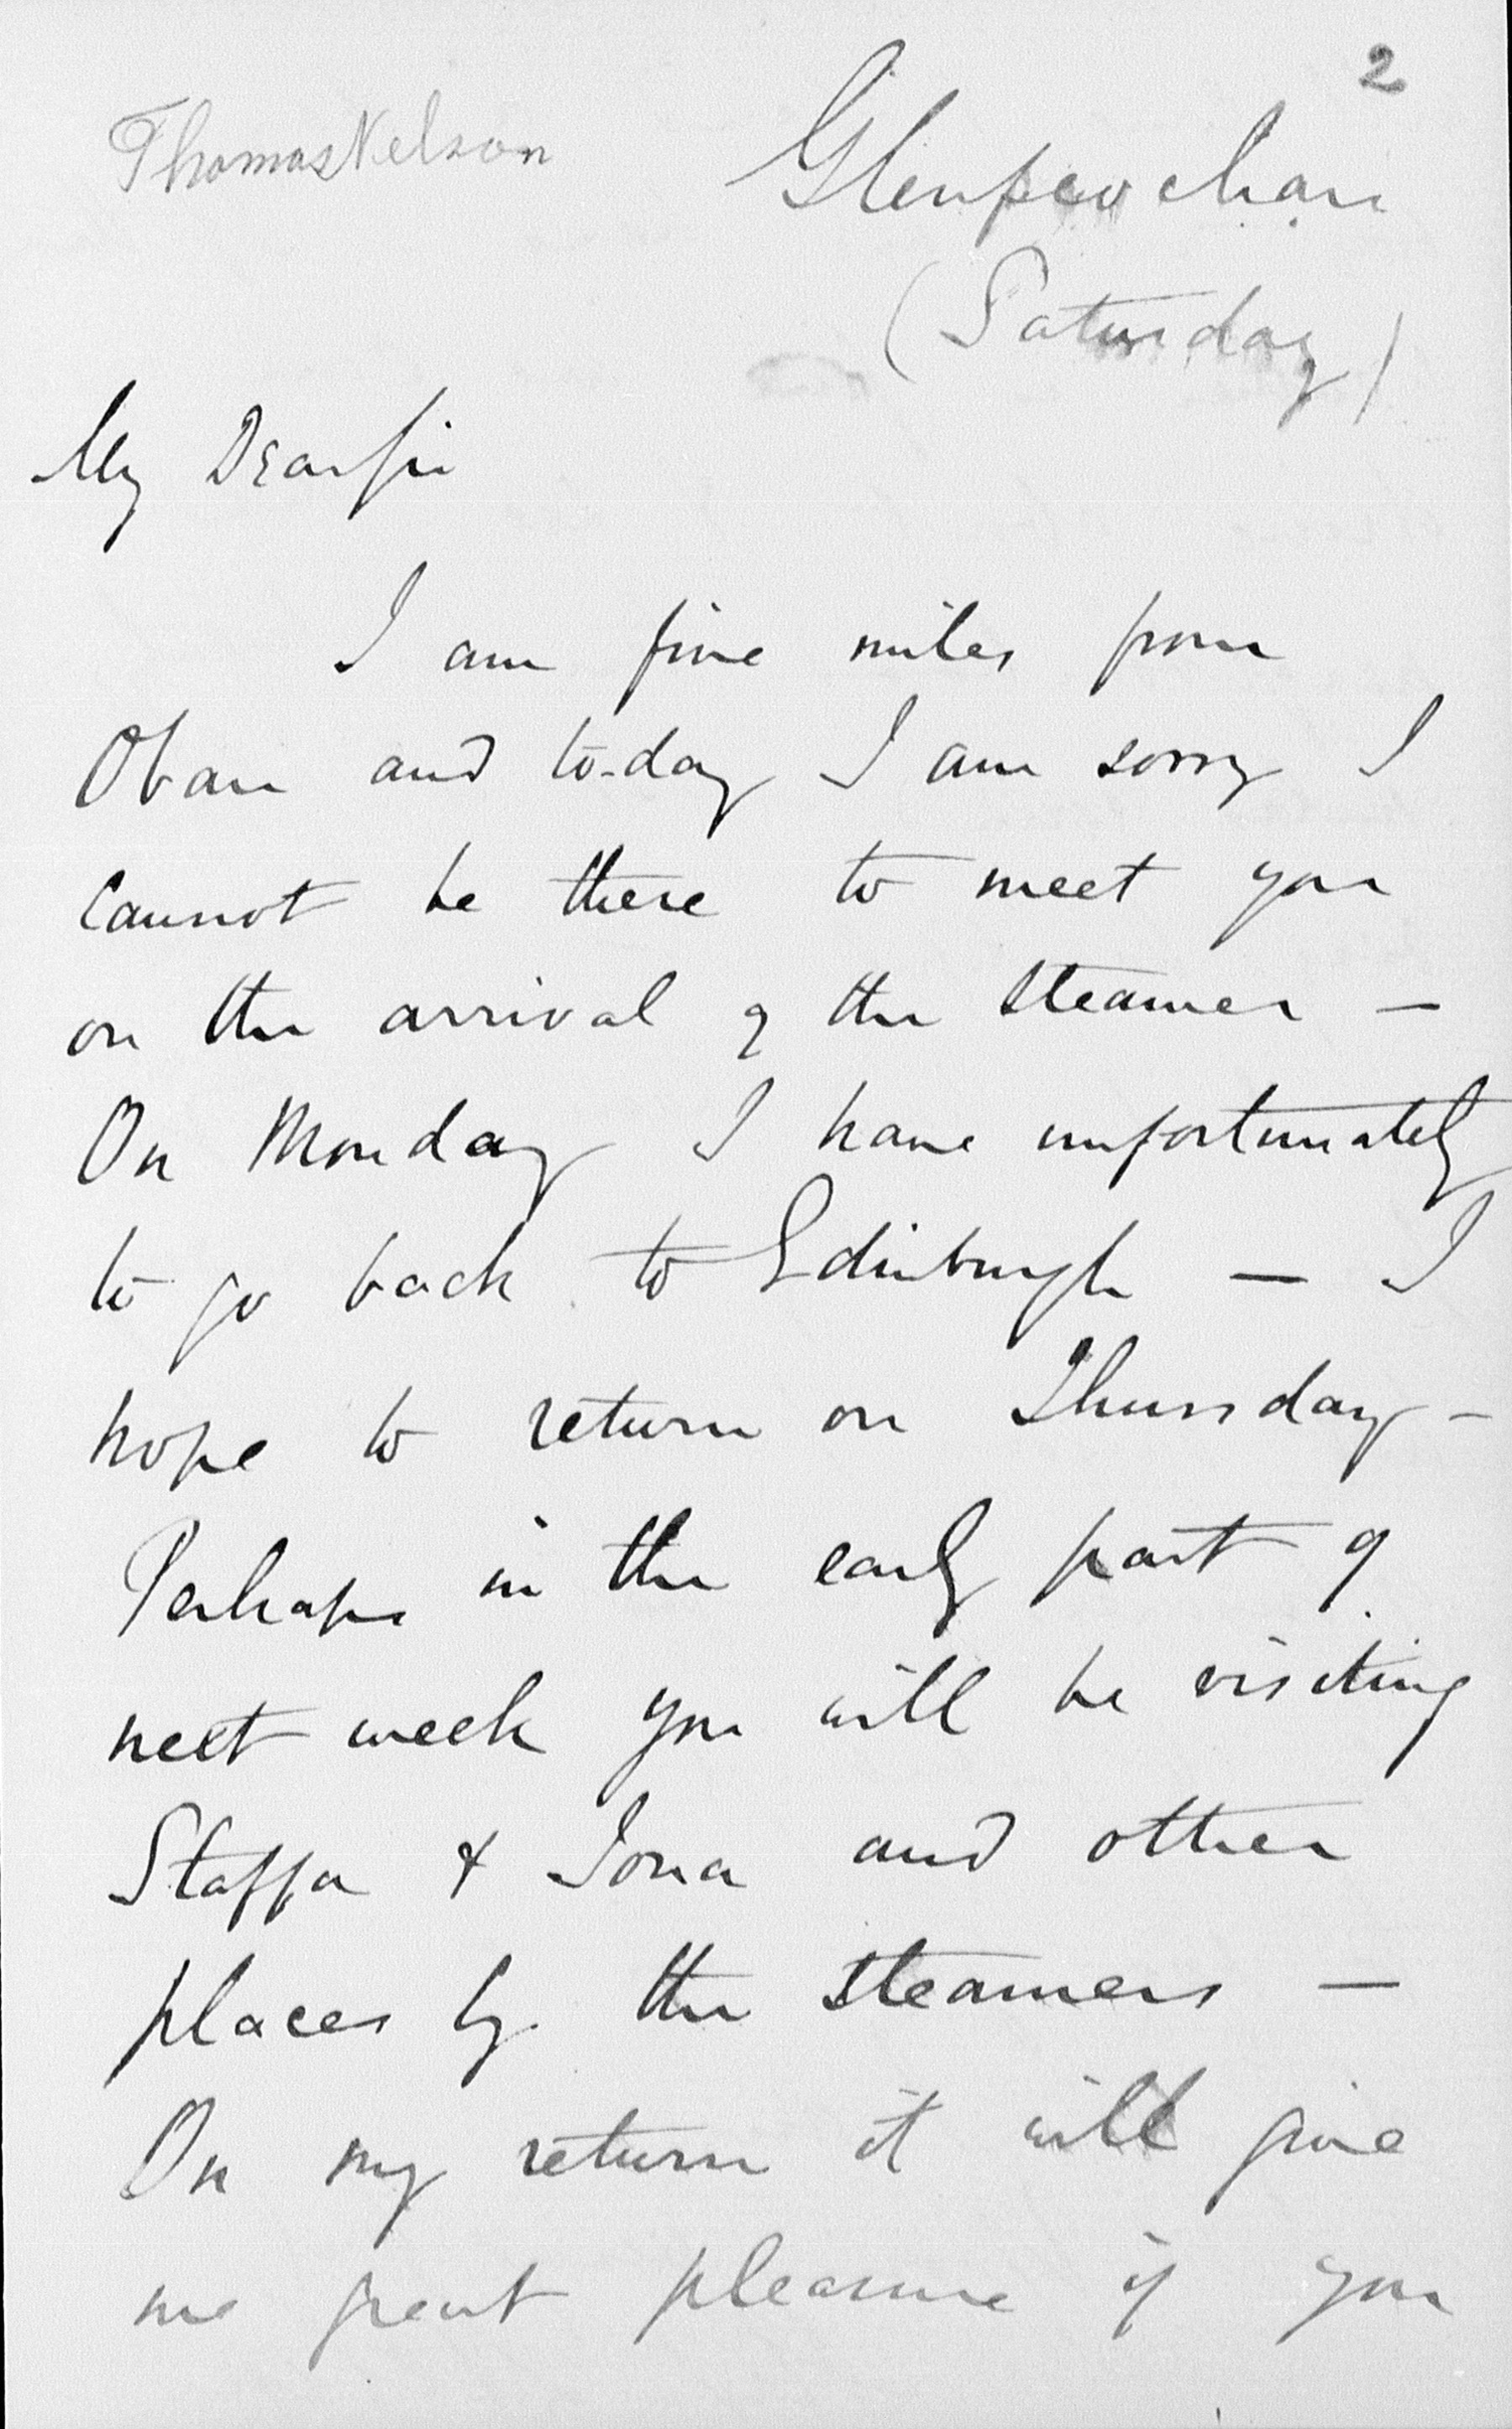 2
Thomas Nelson
Glenfeochan
(Saturday)
My Dear Sir
I am five miles from
Oban and to-day I am sorry I
cannot be there to meet you
on the arrival of the steamer —
On Monday I have unfortunately
to go back to Edinburgh — I
hope to return on Thursday —
Perhaps in the early part of
next week you will be visiting
Staffa & Iona and other
places by the steamers —
On my return it will give
me great pleasure if you